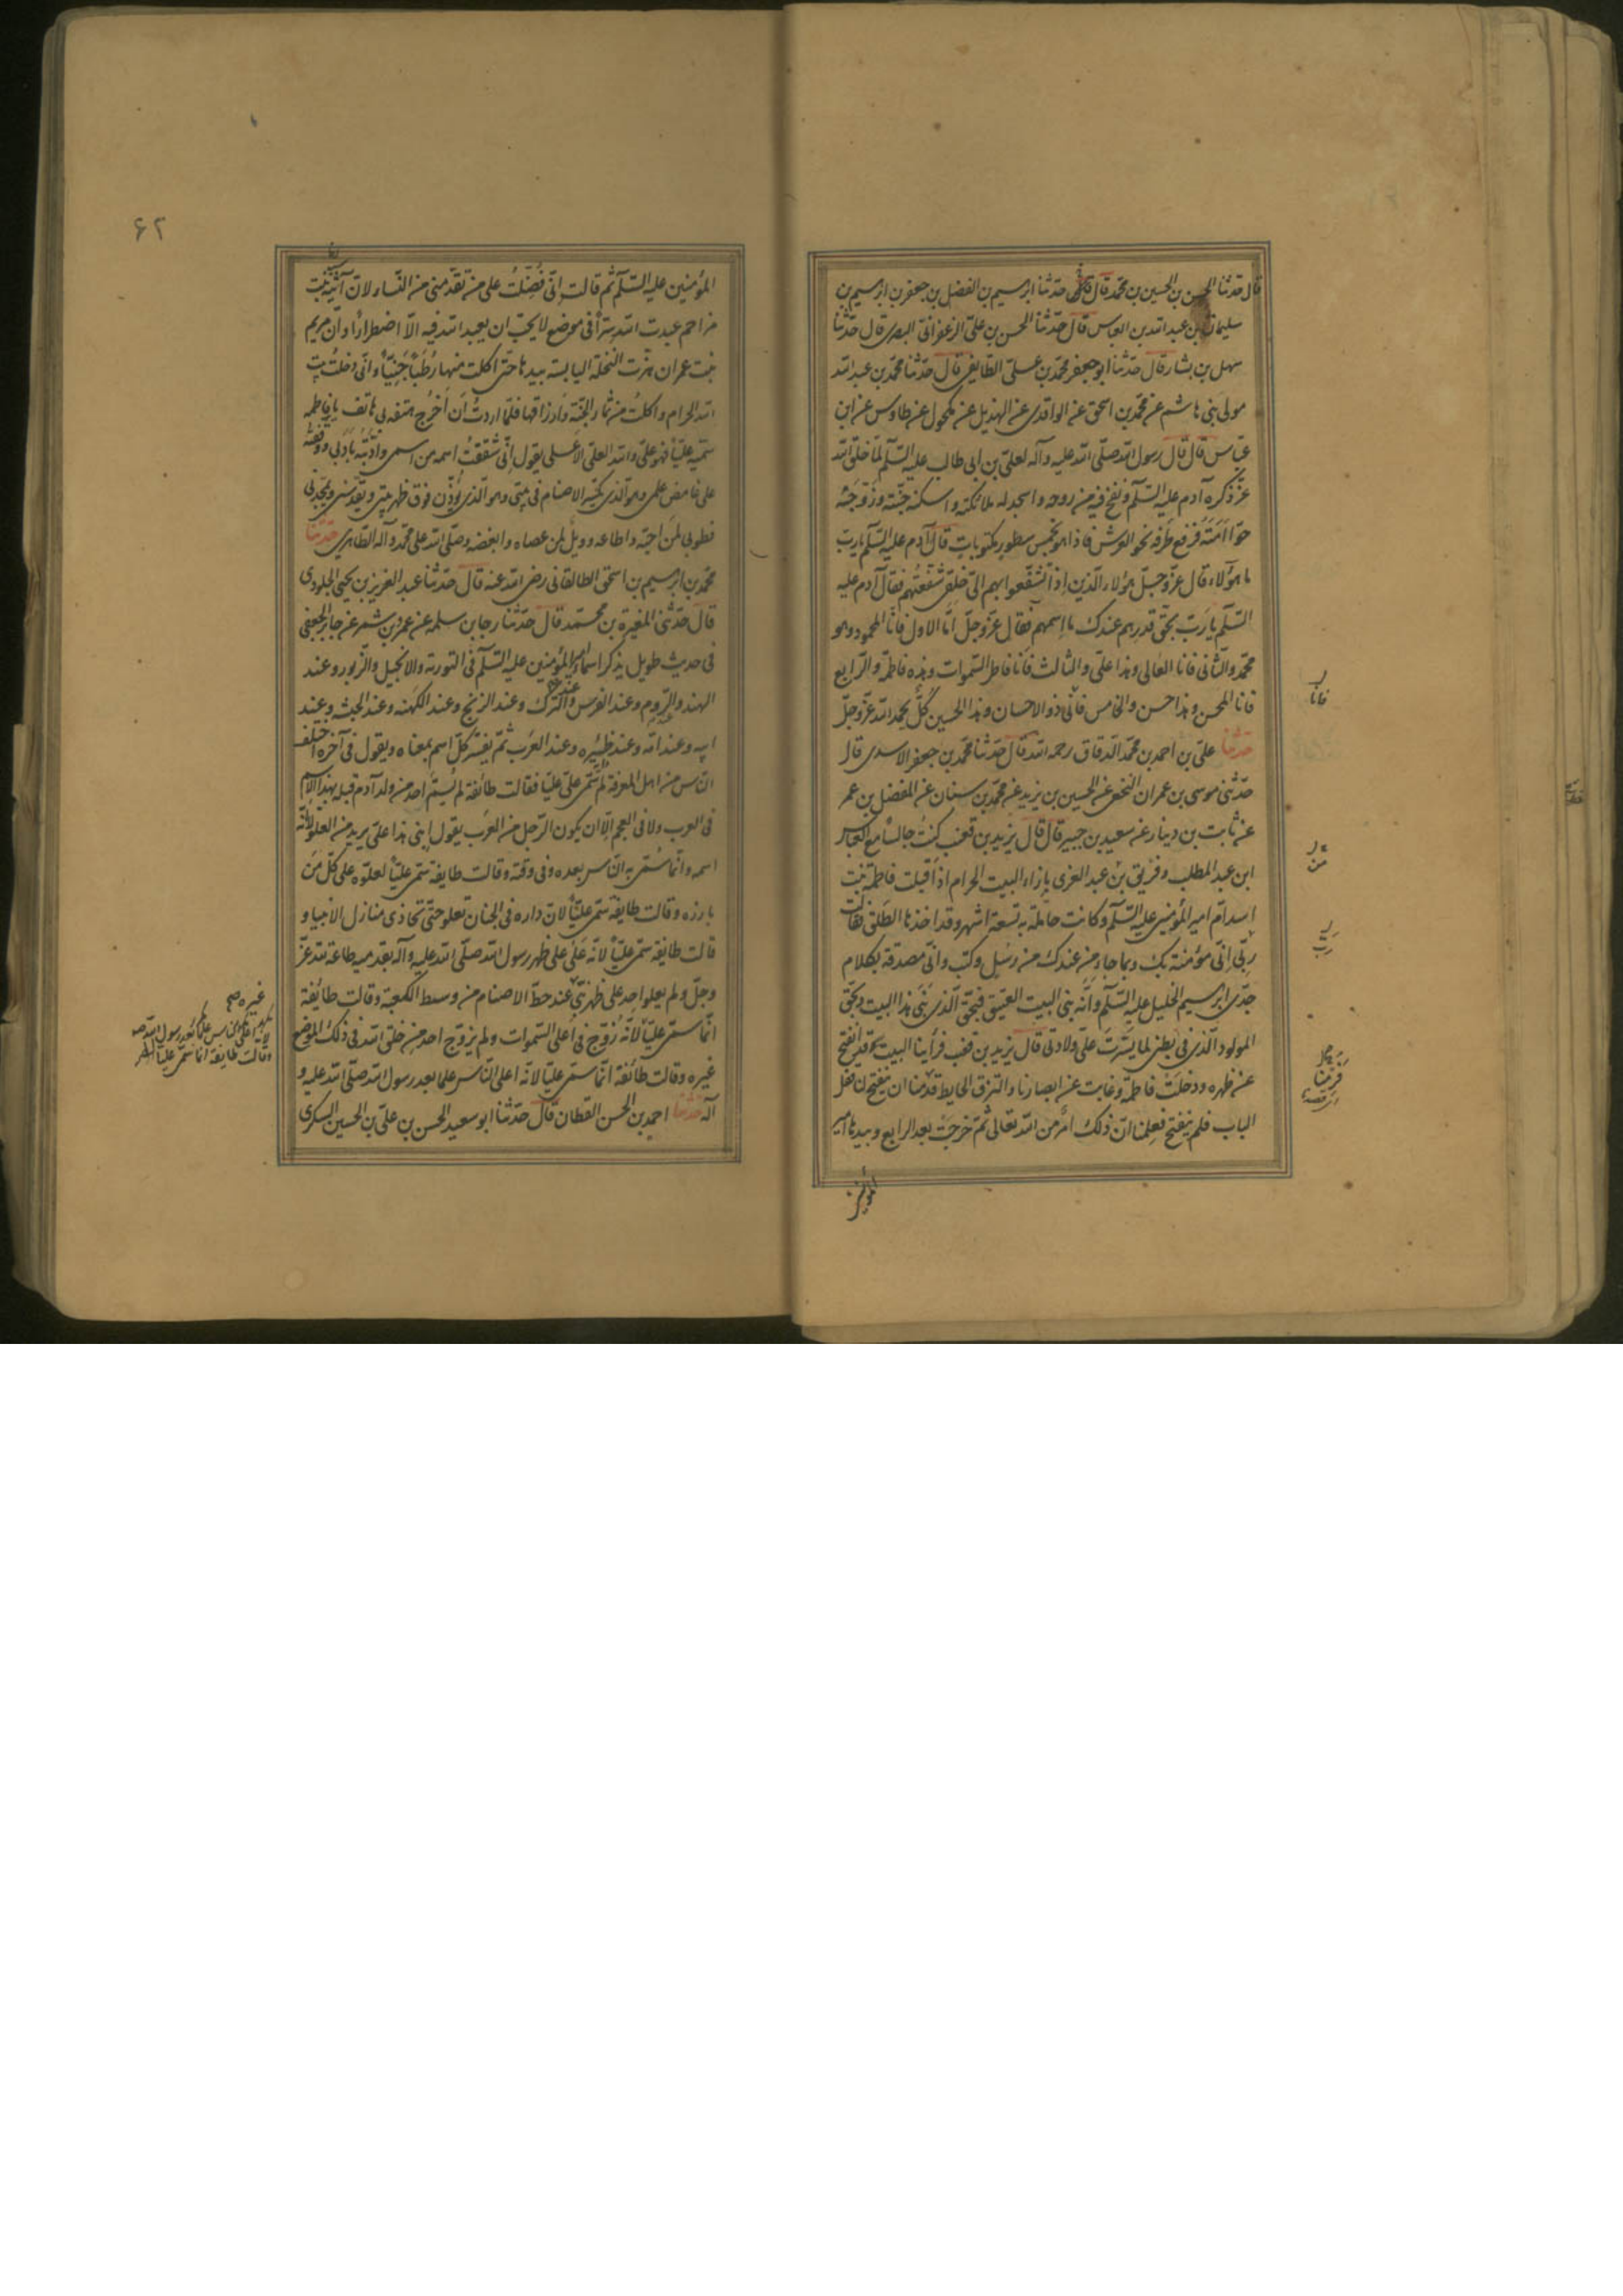 قال حدثنا الحسن بن الحسين بن محمد قال حدثنا ابرهيم بن الفضل بن جعفر بن ابرهيم بن
سليمان بن عبد الله بن العباس قال حدثنا الحسن بن علي الزعفراني البصري قال حدثنا
سهل بن بشار قال حدثنا ابو جعفر محمد بن علي الطايفي قال حدثنا محمد بن عبد الله
مولى بني هاشم عن محمد بن اسحق عن الواقدي عن الهذيل عن مكحول عن طاوس عن ابن
عباس قال قال رسول الله صلى الله عليه وآله لعلي بن ابي طالب عليه السلم لما خلق الله
عز ذكره آدم عليه السلم ونفخ فيه من روحه واسجد له ملائكته واسكنه جنته وزوجه
حوا امته فرفع طرفه نحو العرش فاذا هو بخمس سطور مكتوبات قال آدم عليه السلم يا رب
ما هؤلاء قال عز وجل هؤلاء الذين اذا تشفعوا بهم الي خلقي شفعتهم فقال آدم عليه
السلم يا رب بحق قدرهم عندك ما اسمهم فقال عز وجل اما الاول فانا المحمود وهو
محمد والثاني فانا العالي وهذا علي والثالث فانا فاطر السموات وهذه فاطمة والرابع
فانا المحسن وهذا حسن والخامس فاني ذو الاحسان وهذا الحسين كل يحمد الله عز وجل
حدثنا علي بن احمد بن محمد الدقاق رحمه الله قال حدثنا محمد بن جعفر الاسدي قال
حدثني موسى بن عمران النخعي عن الحسين بن يزيد عن محمد بن سنان عن المفضل بن عمر
عن ثابت بن دينار عن سعيد بن جبير قال قال يزيد بن قعنب كنت جالسا مع العباس
ابن عبد المطلب وفريق بن عبد العزى بازاء البيت الحرام اذ اقبلت فاطمة بنت
اسد ام امير المؤمنين عليه السلم وكانت حاملة به تسعة اشهر وقد اخذها الطلق فقالت
ربي اني مؤمنة بك وبما جاء من عندك من رسل وكتب واني مصدقة بكلام
جدي ابرهيم الخليل عليه السلم وانه بنى البيت العتيق فبحق الذي بنى هذا البيت وبحق
المولود الذي في بطني لما يسرت علي ولادتي قال يزيد بن قعنب فرأينا البيت وقد انفتح
عن ظهره ودخلت فاطمة وغابت عن ابصارنا والتزق الحايط فرمنا ان ينفتح لنا قفل
الباب فلم ينفتح فعلمنا ان ذلك امر من الله تعالى ثم خرجت بعد الرابع وبيدها امير
المؤمنين
فانا
من
رب
فرمنا
٦٢
المؤمنين عليه السلم ثم قالت اني فضلت على من تقدمني من النساء لان آسية بنت
مزاحم عبدت الله سرا في موضع لا يحب ان يعبد الله فيه الا اضطرارا وان مريم
بنت عمران هزت النخلة اليابسة بيدها حتى اكلت منها رطبا جنيا واني دخلت بيت
الله الحرام واكلت من ثمار الجنة وارزاقها فلما اردت ان اخرج هتف بي هاتف يا فاطمه
سميه عليا فهو علي والله العلي الاعلى يقول اني شققت اسمه من اسمي وادبته بادبي ووقفته
على غامض علمي وهو الذي يكسر الاصنام في بيتي وهو الذي يؤذن فوق ظهر بيتي ويقدسني ويمجدني
فطوبى لمن احبه واطاعه وويل لمن عصاه وابغضه وصلى الله على محمد وآله الطاهرين حدثنا
محمد بن ابرهيم بن اسحق الطالقاني رضي الله عنه قال حدثنا عبد العزيز بن يحيى الجلودي
قال حدثني المغيرة بن محمد قال حدثنا رجا بن سلمه عن عمرو بن شمر عن جابر الجعفي
في حديث طويل يذكر اسماء امير المؤمنين عليه السلم في التورية والانجيل والزبور وعند
الهند والروم وعند الفرس وعند الترك وعند الزنج وعند الكهنه وعند الحبشه وعند
ابيه وعند امه وعند ظئيره وعند العرب ثم يفسر كل اسم بمعناه ويقول في آخره اختلف
الناس من اهل المعرفة لم سمي علي عليا فقالت طائفة لم يسم احد من ولد آدم قبله بهذا الاسم
في العرب ولا في العجم الا ان يكون الرجل من العرب يقول ابني هذا علي يريد من العلو لا انه
اسمه وانما سمي به الناس بعده وفي وقته وقالت طايفة سمي عليا لعلوه على كل من
بارزه وقالت طايفة سمي عليا لان داره في الجنان تعلو حتى تحاذي منازل الانبيا و
قالت طايفة سمي عليا لانه علي على ظهر رسول الله صلى الله عليه وآله بقدميه طاعة لله عز
وجل ولم يعلو احد على ظهر نبي عند حط الاصنام من وسط الكعبة وقالت طائفة
انما سمي عليا لانه زوج في اعلى السموات ولم يزوج احد من خلق الله في ذلك الموضع
غيره وقالت طائفة انما سمي عليا لانه اعلى الناس علما بعد رسول الله صلى الله عليه و
آله حدثنا احمد بن الحسن القطان قال حدثنا ابو سعيد الحسن بن علي بن الحسين السكري
غيره صح
وقالت طايفة انما سمي عليا